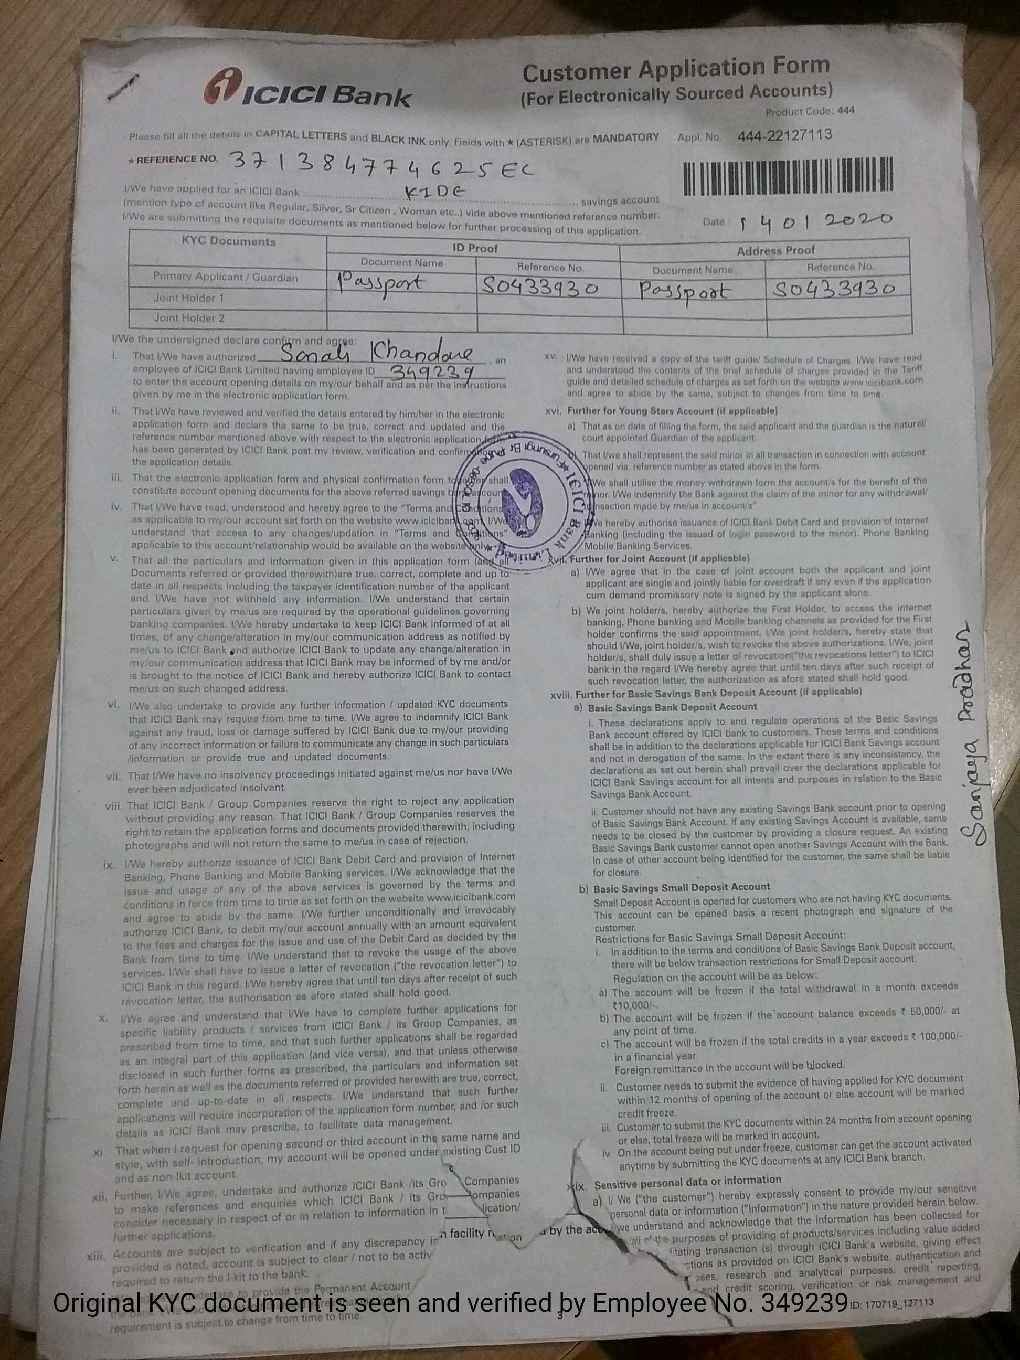 ICICI Bank
Customer Application Form
(For Electronically Sourced Accounts)
Product Code: 444
Please fill all the details in CAPITAL LETTERS and BLACK INK only. Fields with ★ (ASTERISK) are MANDATORY
Appl. No. 444-22127113
★ REFERENCE NO. 371384774625EC
I/We have applied for an ICICI Bank KIDE savings account
(mention type of account like Regular, Silver, Sr Citizen, Woman etc.,) vide above mentioned reference number.
I/We are submitting the requisite documents as mentioned below for further processing of this application.
Date: 14012020
KYC Documents ID Proof Address Proof
Document Name Reference No. Document Name Reference No.
Primary Applicant / Guardian Passport S0433930 Passport S0433930
Joint Holder 1
Joint Holder 2
I/We the undersigned declare confirm and agree:
i. That I/We have authorized Sonali Khandare, an
employee of ICICI Bank Limited having employee ID 349239
to enter the account opening details on my/our behalf and as per the instructions
given by me in the electronic application form.
ii. That I/We have reviewed and verified the details entered by him/her in the electronic
application form and declare the same to be true, correct and updated and the
reference number mentioned above with respect to the electronic application
has been generated by ICICI Bank post my review, verification and
the application details.
iii. That the electronic application form and physical confirmation form shall
constitute account opening documents for the above referred savings
iv. That I/We have read, understood and hereby agree to the "Terms and
as applicable to my/our account set forth on the website I/We
understand that access to any changes/updation in "Terms and
applicable to this account/relationship would be available on the website only
v. That all the particulars and information given in this application form (and all
Documents referred or provided therewith) are true, correct, complete and up to
date in all respects including the taxpayer identification number of the applicant
and I/We have not withheld any information. I/We understand that certain
particulars given by me/us are required by the operational guidelines governing
banking companies. I/We hereby undertake to keep ICICI Bank informed of at all
times, of any change/alteration in my/our communication address as notified by
me/us to ICICI Bank and authorize ICICI Bank to update any change/alteration in
my/our communication address that ICICI Bank may be informed of by me and/or
is brought to the notice of ICICI Bank and hereby authorize ICICI Bank to contact
me/us on such changed address.
vi. I/We also undertake to provide any further information / updated KYC documents
that ICICI Bank may require from time to time. I/We agree to indemnify ICICI Bank
against any fraud, loss or damage suffered by ICICI Bank due to my/our providing
of any incorrect information or failure to communicate any change in such particulars
/information or provide true and updated documents.
vii. That I/We have no insolvency proceedings initiated against me/us nor have I/We
ever been adjudicated insolvent
viii. That ICICI Bank / Group Companies reserve the right to reject any application
without providing any reason. That ICICI Bank / Group Companies reserves the
right to retain the application forms and documents provided therewith, including
photographs and will not return the same to me/us in case of rejection.
ix. I/We hereby authorize issuance of ICICI Bank Debit Card and provision of Internet
Banking, Phone Banking and Mobile Banking services. I/We acknowledge that the
issue and usage of any of the above services is governed by the terms and
conditions in force from time to time as set forth on the website www.icicibank.com
and agree to abide by the same. I/We further unconditionally and irrevocably
authorize ICICI Bank, to debit my/our account annually with an amount equivalent
to the fees and charges for the issue and use of the Debit Card as decided by the
Bank from time to time. I/We understand that to revoke the usage of the above
services. I/We shall have to issue a letter of revocation ("the revocation letter") to
ICICI Bank in this regard. I/We hereby agree that until ten days after receipt of such
revocation letter, the authorisation as afore stated shall hold good.
x. I/We agree and understand that I/We have to complete further applications for
specific liability products / services from ICICI Bank / its Group Companies, as
prescribed from time to time, and that such further applications shall be regarded
as an integral part of this application (and vice versa), and that unless otherwise
disclosed in such further forms as prescribed, the particulars and information set
forth herein as well as the documents referred or provided herewith are true, correct,
complete and up-to-date in all respects. I/We understand that such further
applications will require incorporation of the application form number, and /or such
details as ICICI Bank may prescribe, to facilitate data management.
xi That when I request for opening second or third account in the same name and
style, with self- introduction, my account will be opened under existing Cust ID
and as non-Ikit account.
xii. Further, I/We agree, undertake and authorize ICICI Bank /its Gro Companies
to make references and enquiries which ICICI Bank / its Gro ompanies
consider necessary in respect of or in relation to information in t lication/
further applications. facility by the
xiii. Accounts are subject to verification and if any discrepancy
provided is noted, account is subject to clear / not to be activ
required to return the I-kit to the bank.
provide the Permanent Account
requirement is subject to change from time to time.
xv. I/We have received a copy of the tariff guide/ Schedule of Charges. I/We have read
and understood the contents of the brief schedule of charges provided in the Tariff
guide and detailed schedule of charges as set forth on the website www.icicibank.com
and agree to abide by the same, subject to changes from time to time.
xvi. Further for Young Stars Account (if applicable)
a) That as on date of filling the form, the said applicant and the guardian is the natural/
court appointed Guardian of the applicant.
b) That I/we shall represent the said minor in all transaction in connection with account
opened via. reference number as stated above in the form.
We shall utilise the money withdrawn form the account/s for the benefit of the
I/We indemnify the Bank against the claim of the minor for any withdrawal/
transaction made by me/us in account/s"
hereby authorise issuance of ICICI Bank Debit Card and provision of Internet
Banking (including the issued of login password to the minor), Phone Banking
Mobile Banking Services.
xvii. Further for Joint Account (if applicable)
a) I/We agree that in the case of joint account both the applicant and joint
applicant are single and jointly liable for overdraft if any even if the application
cum demand promissory note is signed by the applicant alone.
b) We joint holder/s, hereby authorize the First Holder, to access the internet
banking, Phone banking and Mobile banking channels as provided for the First
holder confirms the said appointment. I/We joint holder/s, hereby state that
should I/We, joint holder/s, wish to revoke the above authorizations. I/We, joint
holder/s, shall duly issue a letter of revocation("the revocations letter") to ICICI
bank in the regard I/We hereby agree that until ten days after such receipt of
such revocation letter, the authorization as afore stated shall hold good.
xviii. Further for Basic Savings Bank Deposit Account (if applicable)
a) Basic Savings Bank Deposit Account
i. These declarations apply to and regulate operations of the Basic Savings
Bank account offered by ICICI bank to customers. These terms and conditions
shall be in addition to the declarations applicable for ICICI Bank Savings account
and not in derogation of the same. In the extent there is any inconsistency, the
declarations as set out herein shall prevail over the declarations applicable for
ICICI Bank Savings account for all intents and purposes in relation to the Basic
Savings Bank Account.
ii. Customer should not have any existing Savings Bank account prior to opening
of Basic Savings Bank Account. If any existing Savings Account is available, same
needs to be closed by the customer by providing a closure request. An existing
Basic Savings Bank customer cannot open another Savings Account with the Bank.
In case of other account being identified for the customer, the same shall be liable
for closure.
b) Basic Savings Small Deposit Account
Small Deposit Account is opened for customers who are not having KYC documents.
This account can be opened basis a recent photograph and signature of the
customer.
Restrictions for Basic Savings Small Deposit Account:
i. In addition to the terms and conditions of Basic Savings Bank Deposit account,
there will be below transaction restrictions for Small Deposit account.
Regulation on the account will be as below:
a) The account will be frozen if the total withdrawal in a month exceeds
₹10,000/-.
b) The account will be frozen if the account balance exceeds ₹ 50,000/- at
any point of time.
c) The account will be frozen if the total credits in a year exceeds ₹ 100,000/-
in a financial year
Foreign remittance in the account will be blocked.
ii. Customer needs to submit the evidence of having applied for KYC document
within 12 months of opening of the account or else account will be marked
credit freeze.
iii. Customer to submit the KYC documents within 24 months from account opening
or else, total freeze will be marked in account.
iv. On the account being put under freeze, customer can get the account activated
anytime by submitting the KYC documents at any ICICI Bank branch.
xix. Sensitive personal data or information
a) I/ We ("the customer") hereby expressly consent to provide my/our sensitive
personal data or information ("Information") in the nature provided herein below.
we understand and acknowledge that the Information has been collected for
the purposes of providing of products/services including value added
transaction (s) through ICICI Bank's website, giving effect
as provided on ICICI Bank's website, authentication and
research and analytical purposes, credit reporting,
and credit scoring, verification or risk management and
Sanjaya Pradhan
ICICI Bank Limited
Original KYC document is seen and verified by Employee No. 349239
ID: 170719_127113